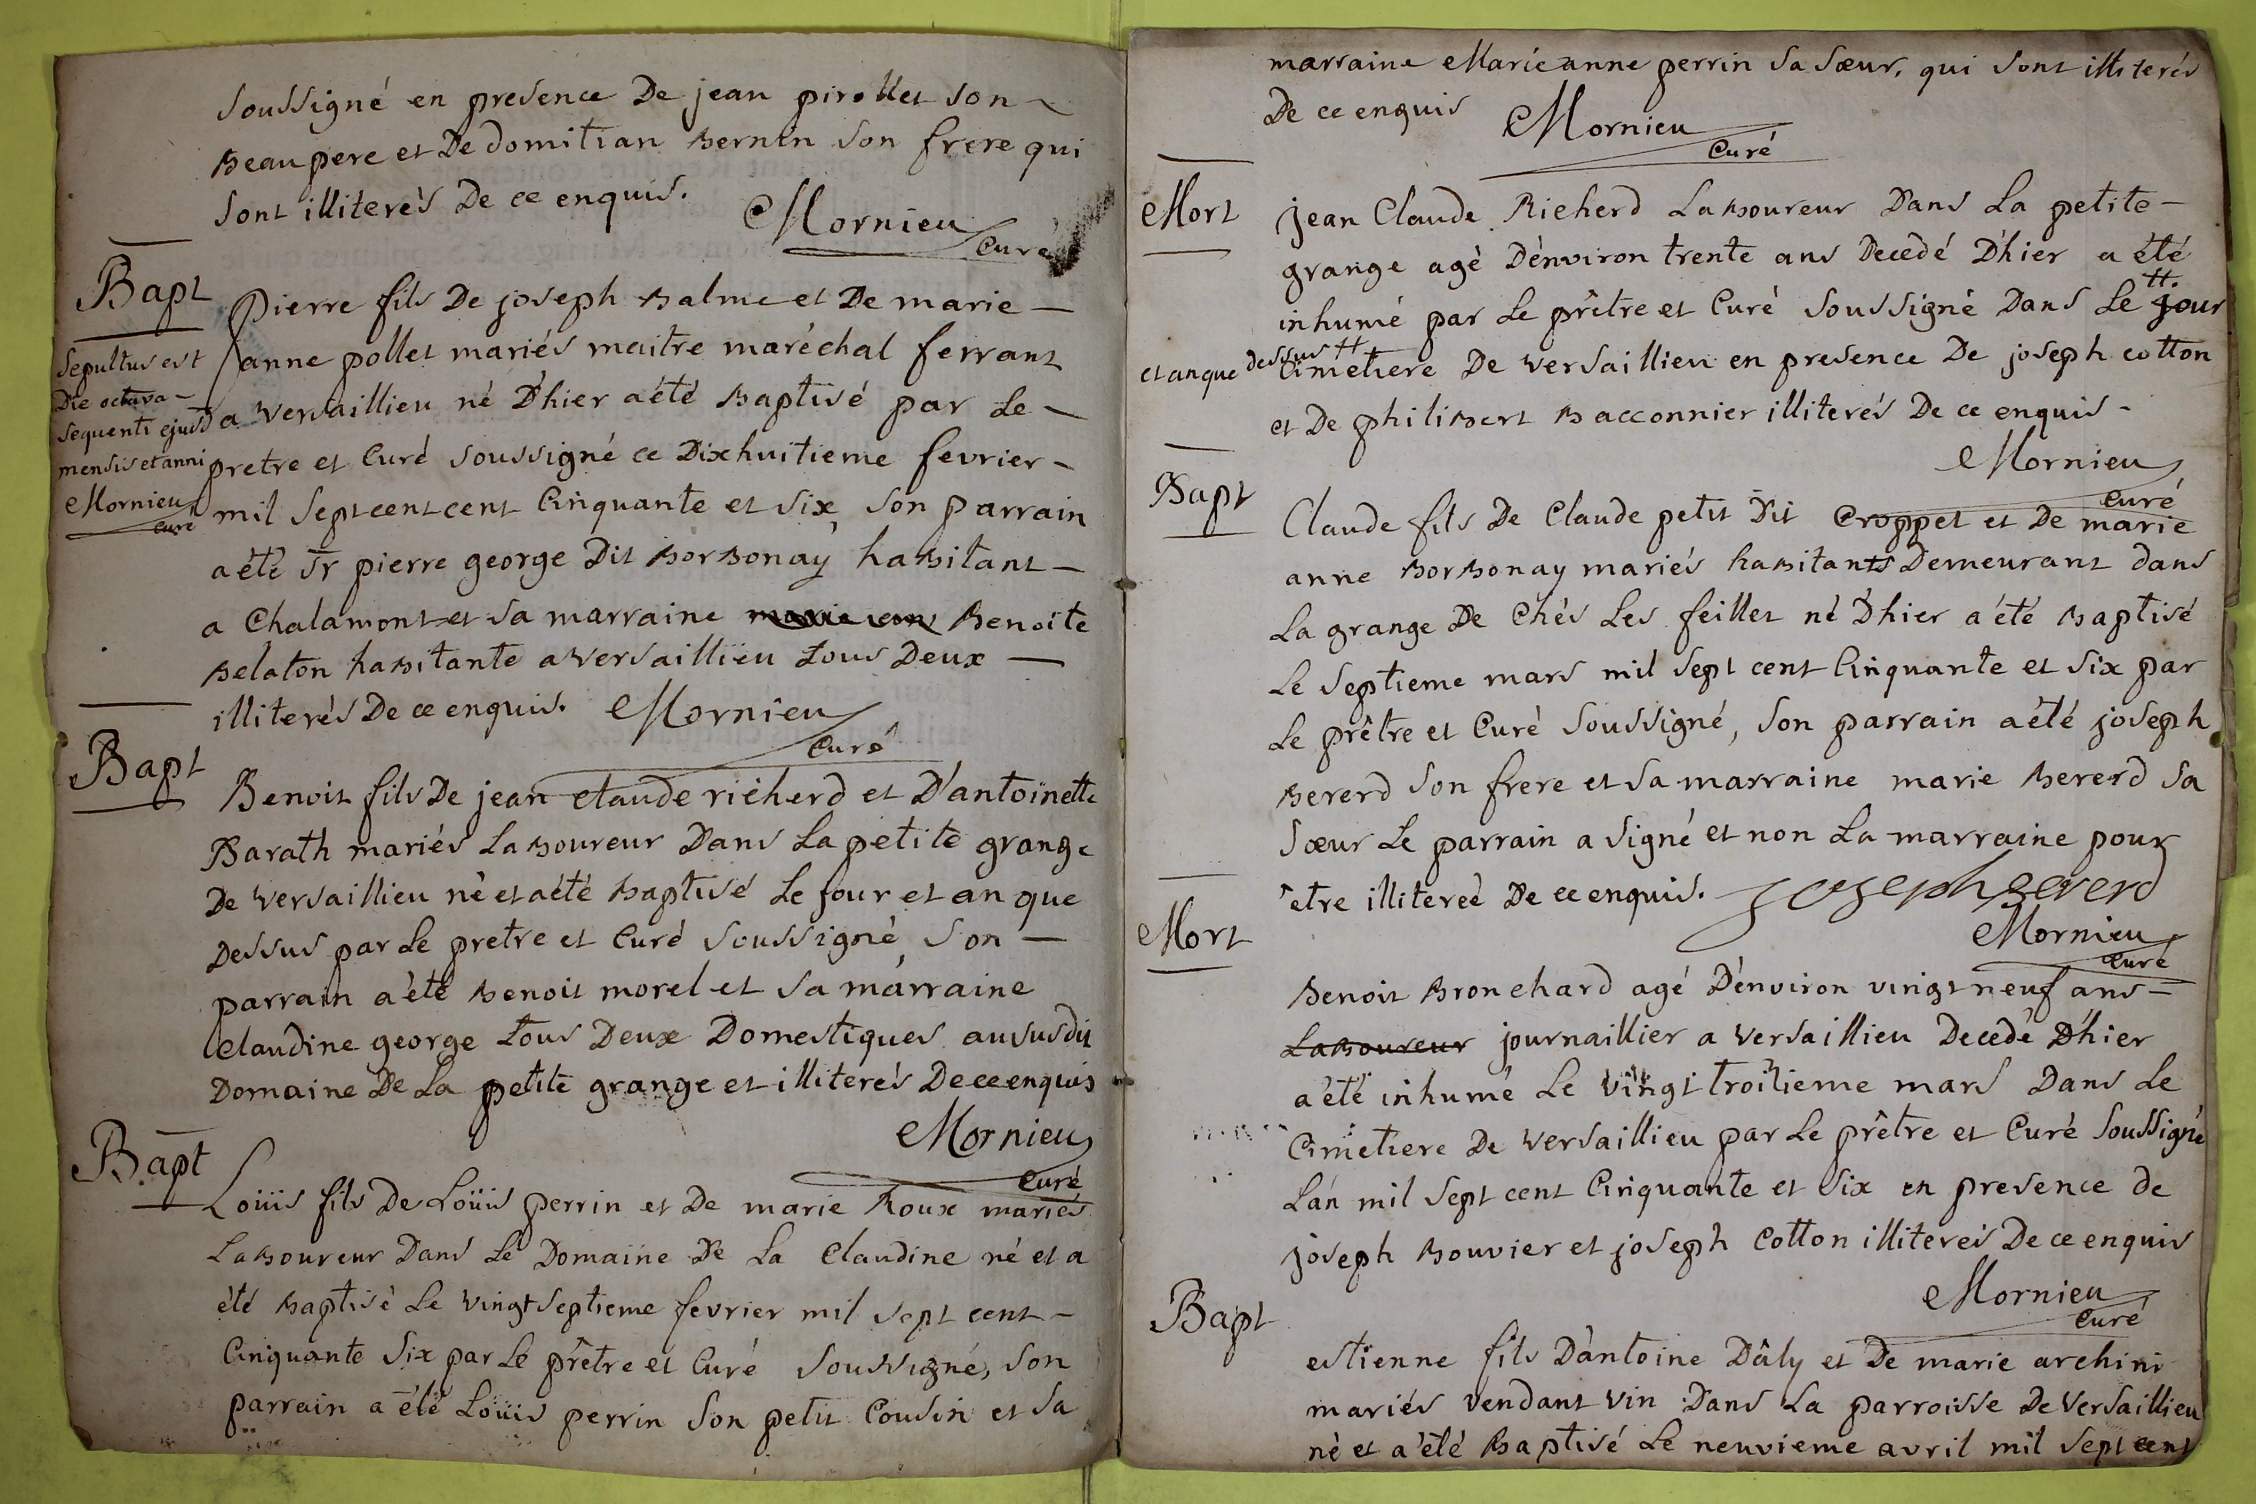 soussigné en presence De jean pirollet son
Beaupere et De domitian Bernin son frere qui
sont illiterés De ce enquis.
Mornieu
Curé
Bapt
Pierre fils De joseph Balme et De marie
anne pollet mariés maitre maréchal ferrant
a versaillieu né D'hier a été Baptisé par Le
pretre et Curé soussigné ce Dixhuitieme fevrier
mil sept cent cent Cinquante et six, son parrain
a été Sr pierre george Dit Borbonay habitant
a Chalamont et sa marraine Benoite
Belaton habitante a versaillieu tous Deux
illiterés De ce enquis. Mornieu
Curé
Sepultus est
Die octava
sequenti ejusd
mensis et anni
Mornieu
curé
Bapt
Benoit fils De jean claude richerd et D'antoinette
Barath mariés Laboureur Dans La petite grange
De versaillieu né et a été baptisé Le jour et an que
Dessus par Le pretre et Curé soussigné, son
parrain a été Benoit morel et sa marraine
Claudine george tous Deux Domestiques au susdit
Domaine De La petite grange et illiterés De ce enquis
Mornieu
Curé
Bapt
Loüis fils De Loüis perrin et De marie Roux mariés
Laboureur Dans Le Domaine De La Claudine né et a
été baptisé Le vingt septieme fevrier mil sept cent
Cinquante six par Le prêtre et Curé soussigné, son
parrain a été Loüis perrin son petit Cousin et sa
marraine Marie anne perrin sa sœur, qui sont illiterés
De ce enquis
Mornieu
Curé
Mort
jean Claude Richerd Laboureur Dans La petite
grange agé D'environ trente ans Decedé D'hier a été
inhumé par Le prêtre et Curé soussigné Dans Le tt. jour
et an que dessus tt
Cimetiere De versaillieu en presence De joseph cotton
et De philibert Bacconnier illiterés De ce enquis
Mornieu
Curé
Bapt
Claude fils De Claude petit Dit Croppet et De marie
anne Borbonay mariés habitants Demeurant dans
La grange De Chés Les feillet né D'hier a été Baptisé
Le septieme mars mil sept cent Cinquante et six par
Le prêtre et Curé soussigné, son parrain a été joseph
Bererd son frere et sa marraine marie Bererd sa
sœur Le parrain a signé et non La marraine pour
être illitereé De ce enquis. joseph Bererd
Mornieu
Curé
Mort
Benoit Bronchard agé D'environ vingt neuf ans
Laboureur journaillier a versaillieu Decedé D'hier
a été inhumé Le vingt troisieme mars Dans Le
Cimetiere De versaillieu par Le prêtre et Curé soussigné
L'an mil sept cent Cinquante et six en presence de
joseph Bouvier et joseph Cotton illiterés De ce enquis
Mornieu
Curé
Bapt
estienne fils D'antoine Dâly et De marie archini
mariés vendant vin Dans La parroisse De versaillieu
né et a été Baptisé Le neuvieme avril mil sept cent